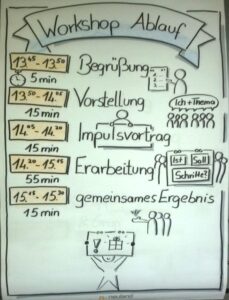 Workshop Ablauf
13⁴⁵-13⁵⁰ Begrüßung
5 min
13⁵⁰-14⁰⁵ Vorstellung
Ich+Thema
15 min
14⁰⁵-14²⁰ Impulsvortrag
15 min
14²⁰-15¹⁵ Erarbeitung
Ist Soll
Schritte?
55 min
15¹⁵-15³⁰ gemeinsames Ergebnis
15 min
neuland